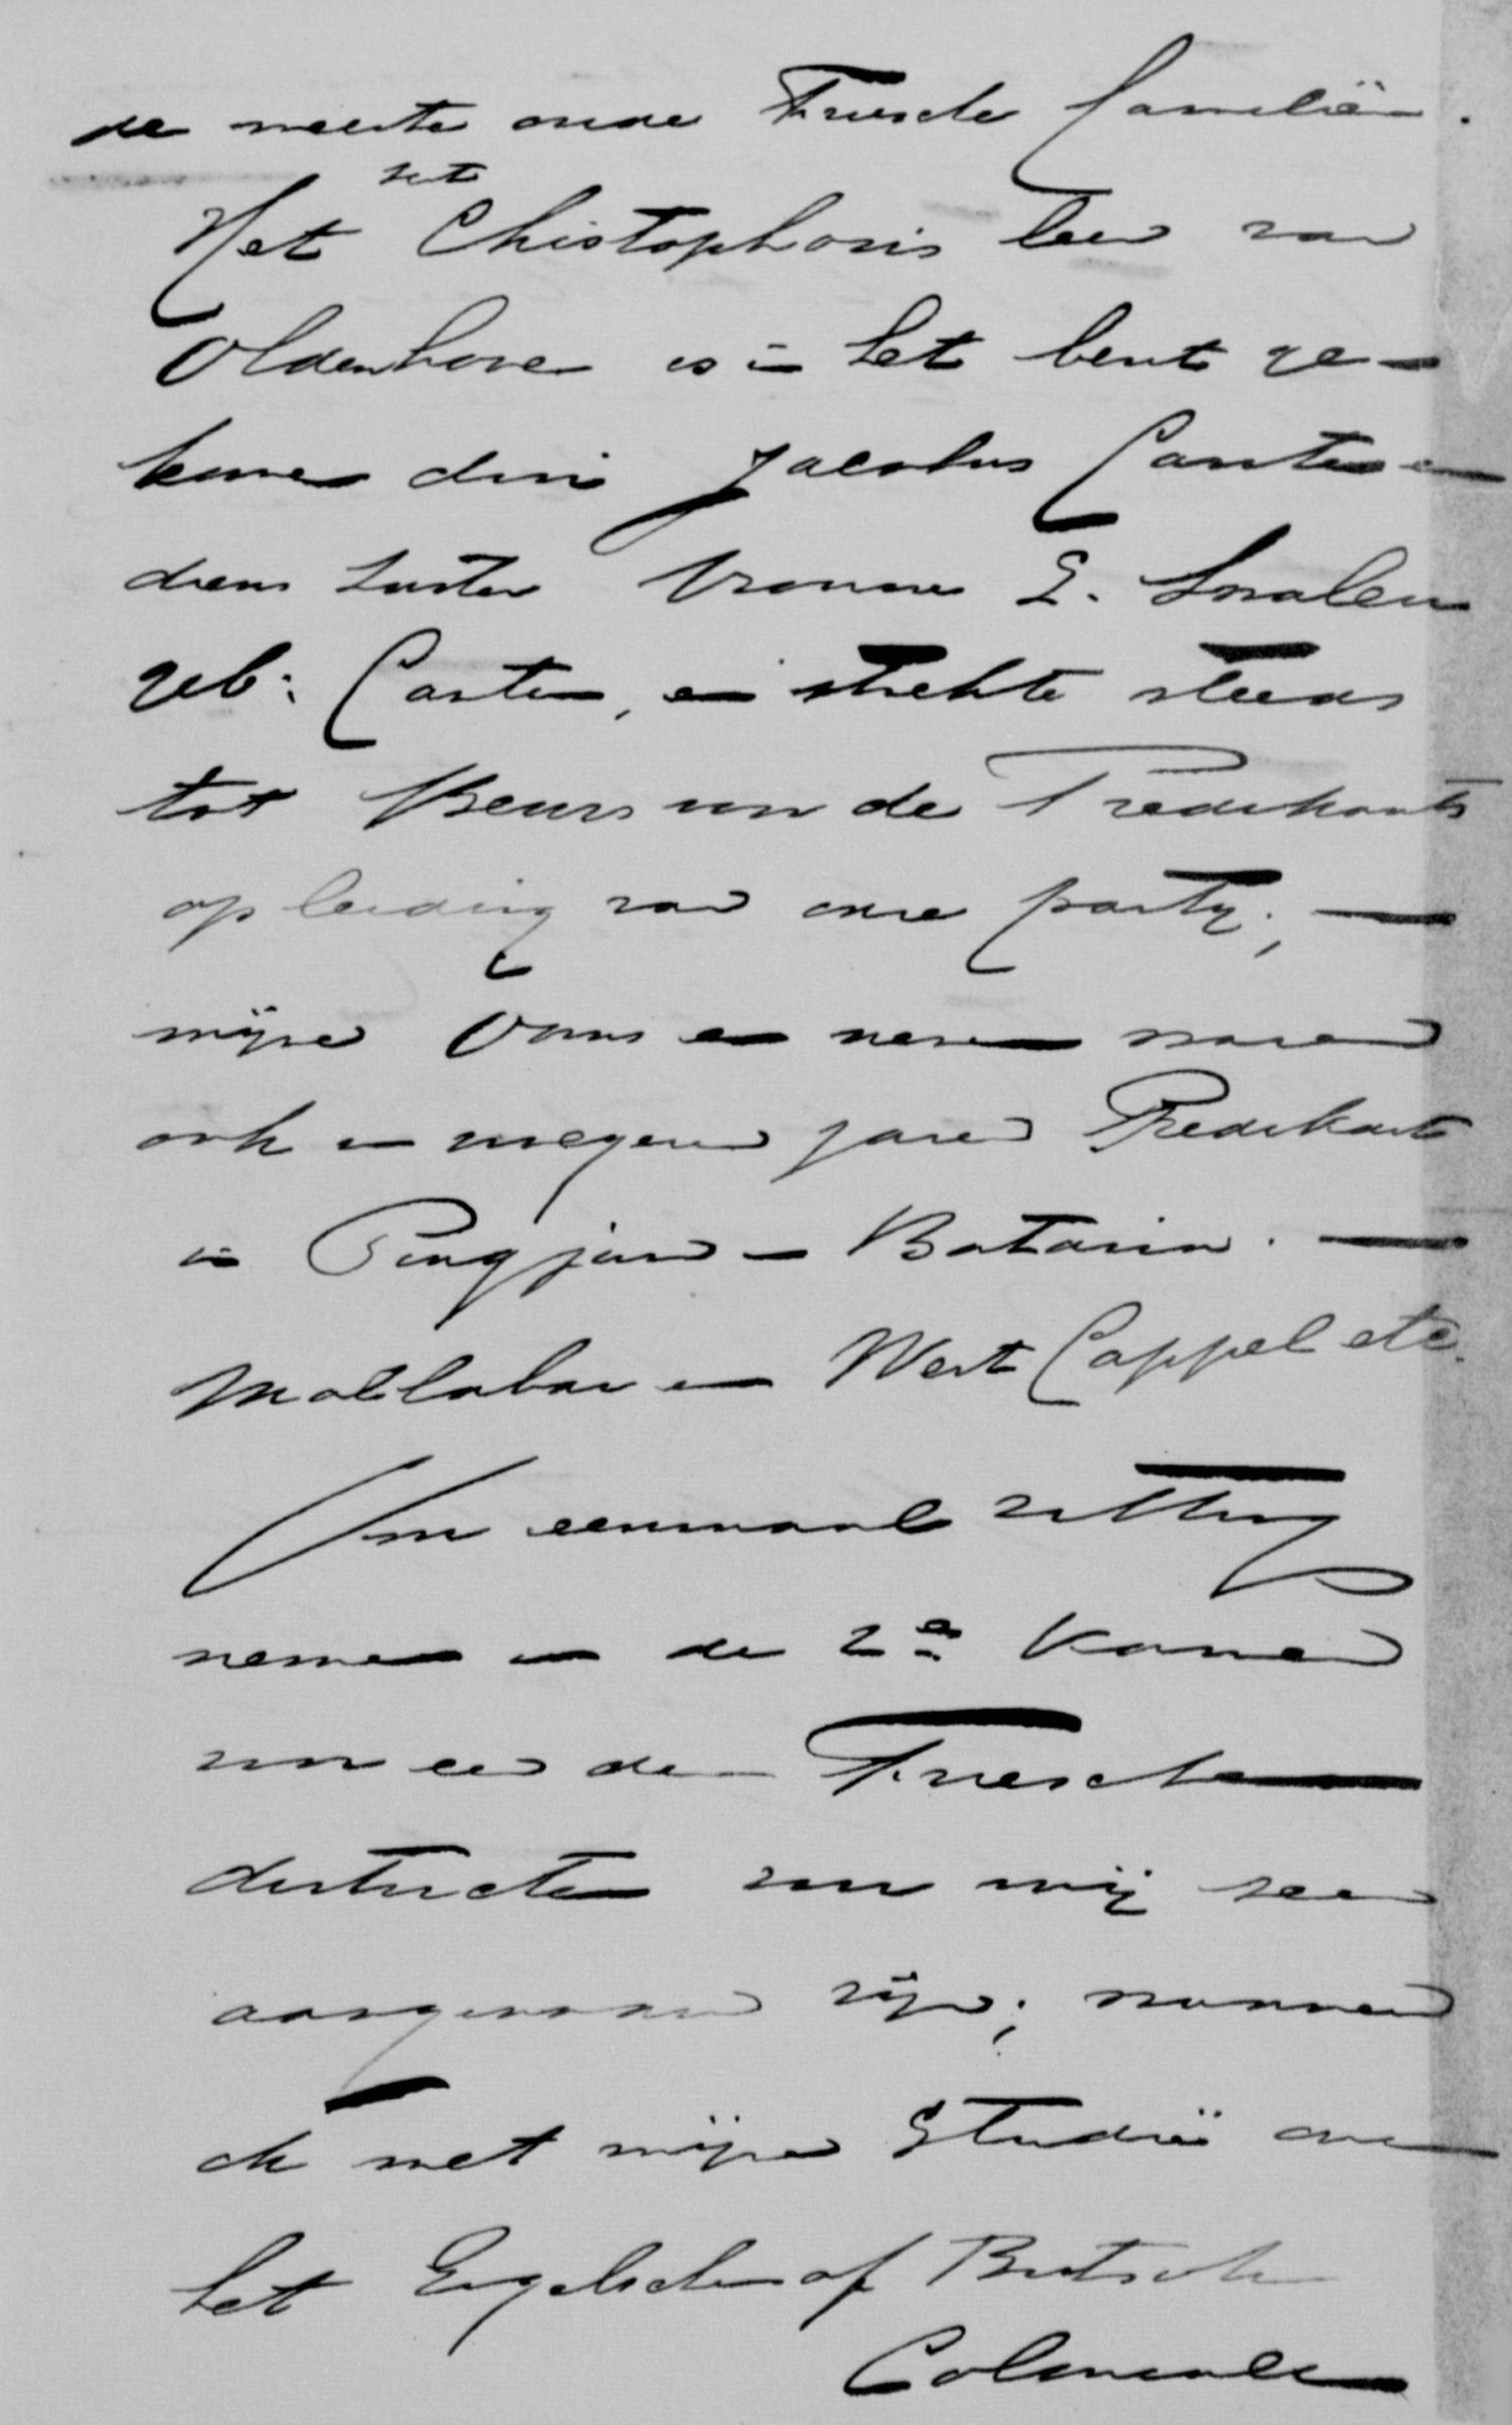 de meeste oude Friesche familiën.
Sint
Het Christophoris leen van
Oldenhove is in het bezit ge-
komen door Jacobus Canter en
diens zuster Vrouwe E. Swalen
geb: Canter, en strekte steeds
tot Beurs van de Predikants
opleiding van onze party; —
mijne Ooms en neven waren
ook in vroegere jaren Predikant
in Pingjum – Batavia. —
Mallabar en West Cappel etc.
Om eenmaal zitting
nemen in de 2de Kamer
voor een der Friesche
districten zou mij zeer
aangenaam zijn; wanneer
ik met mijne Studie over
het Engelsche of Britsche
Coloniale